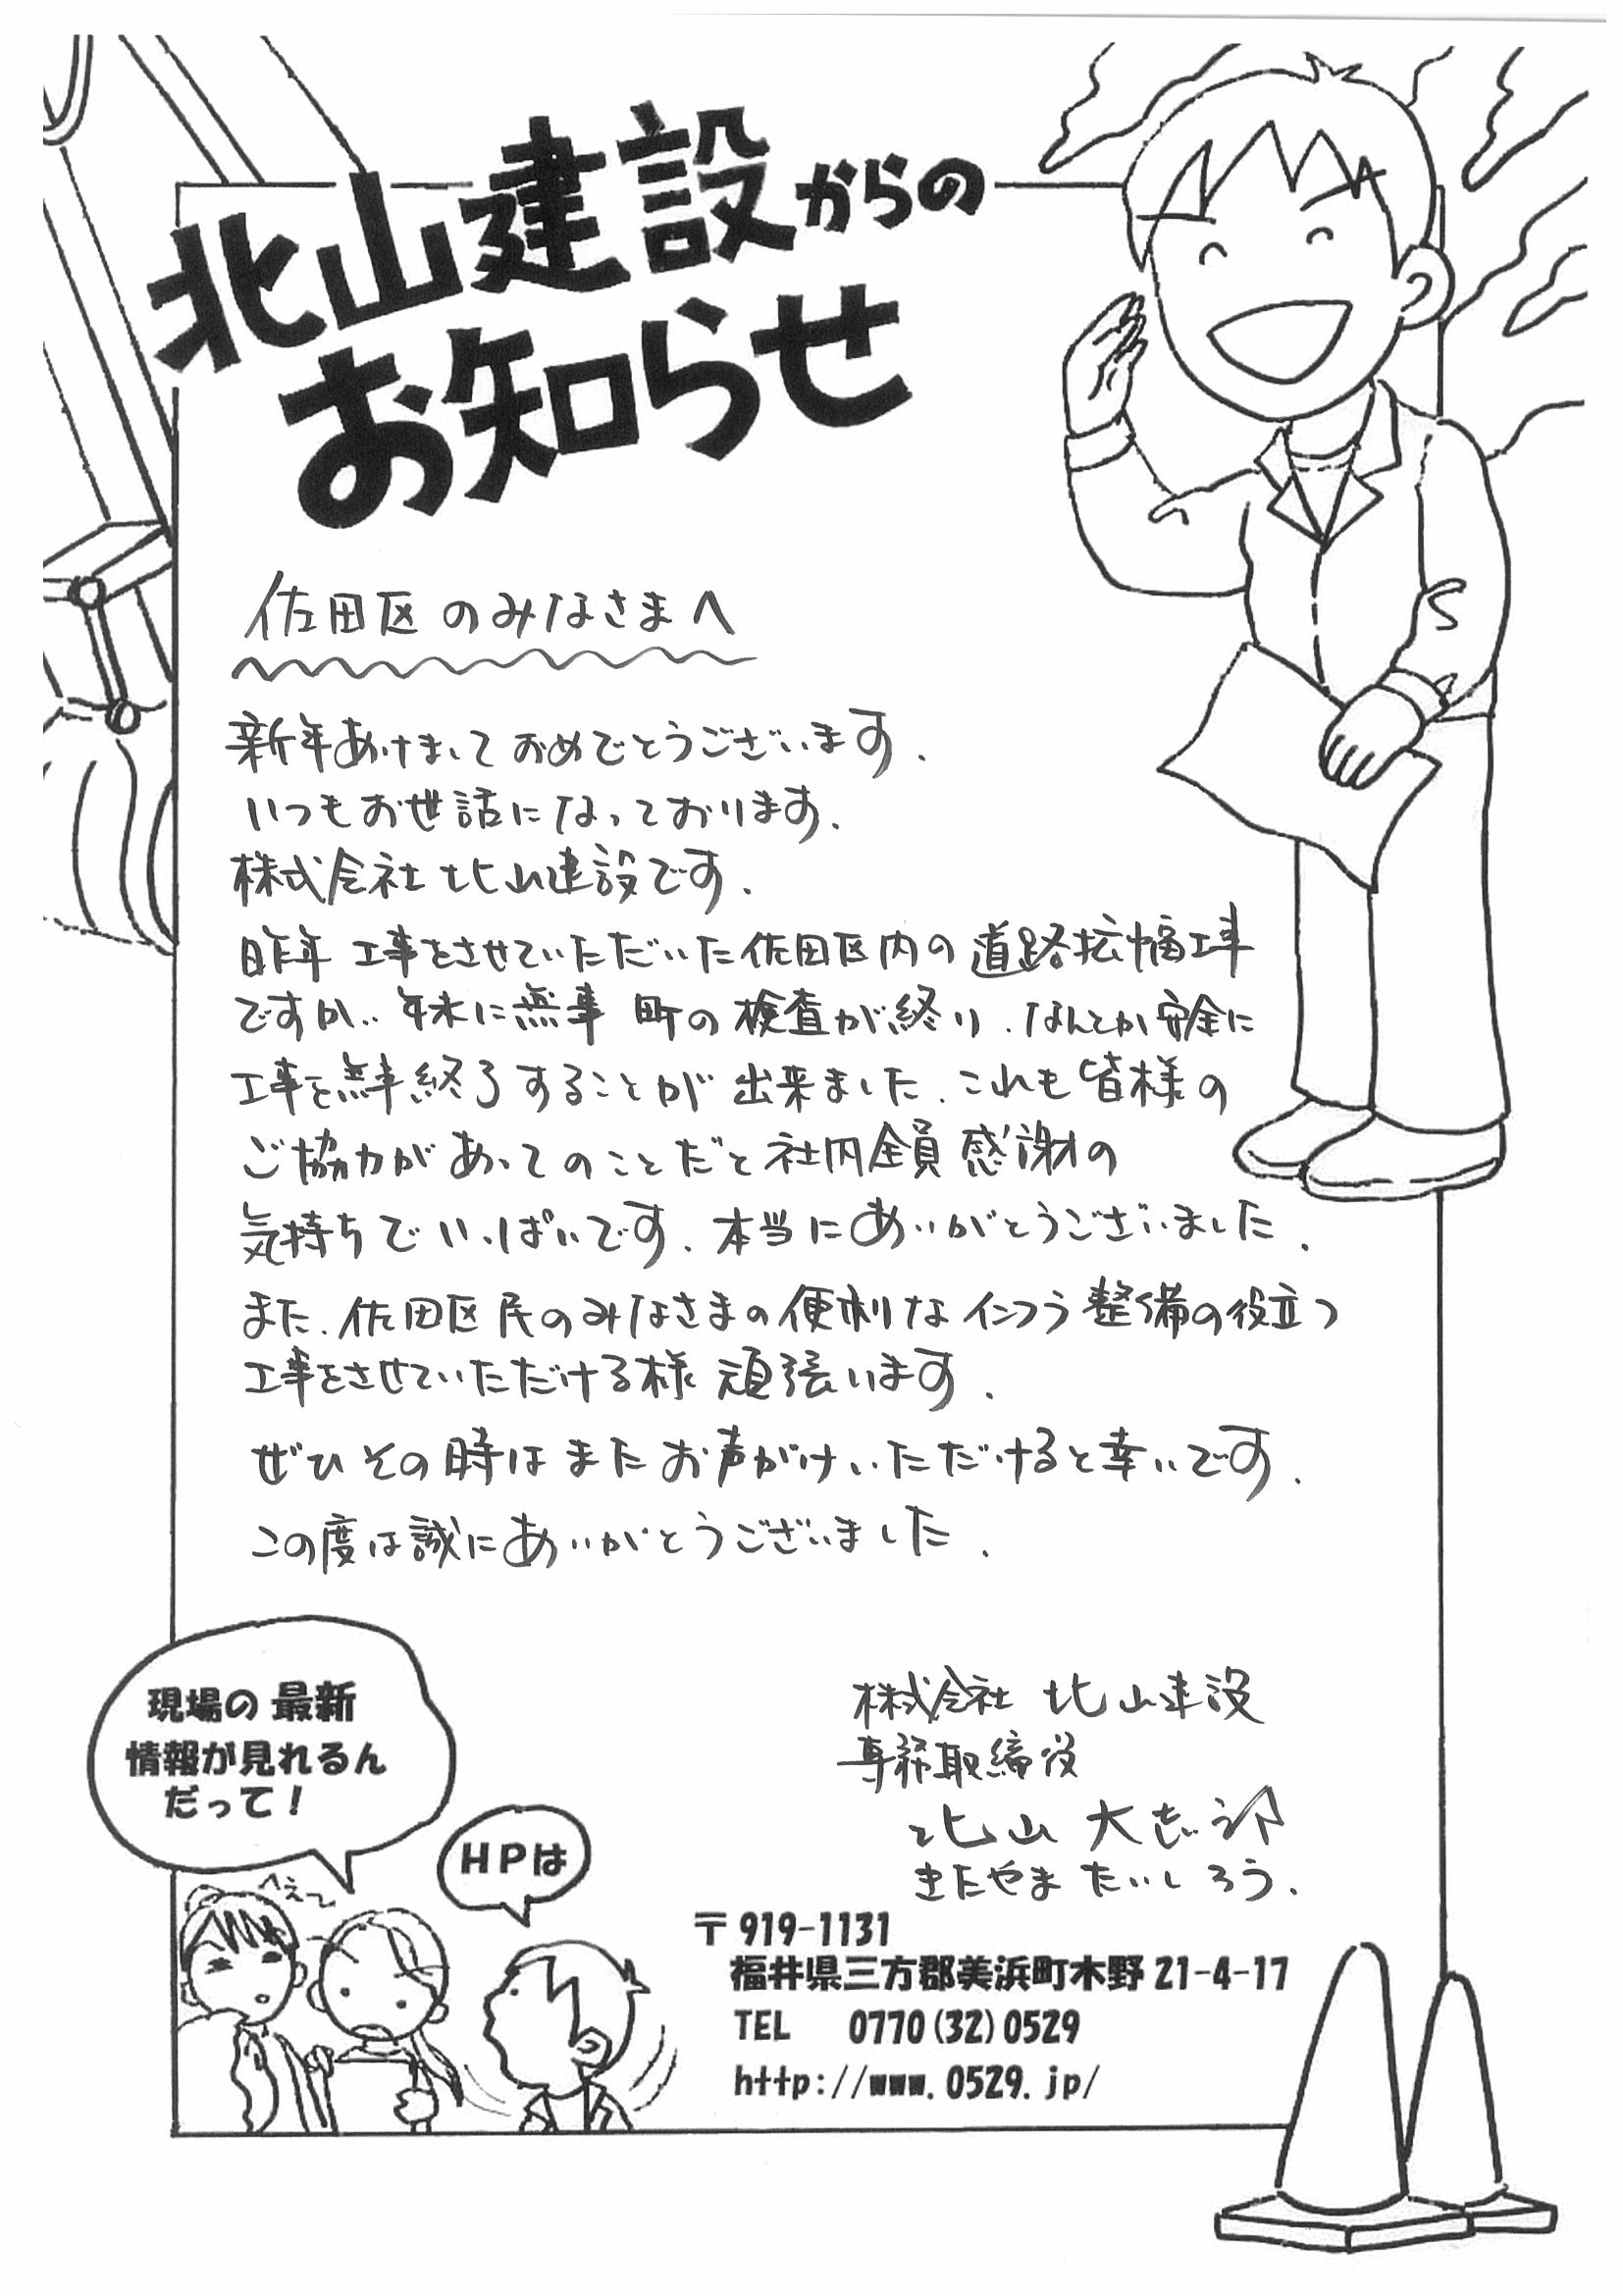 北山建設からの
お知らせ
佐田区のみなさまへ
新年あけましておめでとうございます.
いつもお世話になっております.
株式会社北山建設です.
昨年工事をさせていただいた佐田区内の道路拡幅工事
ですが、年末に無事町の検査が終り、なんとか安全に
工事を無事終了することが出来ました.これも皆様の
ご協力があってのことだと社内全員感謝の
気持ちでいっぱいです.本当にありがとうございました.
また、佐田区民のみなさまの便利なインフラ整備の役立つ
工事をさせていただける様頑張います.
ぜひその時はまたお声がけいただけると幸いです.
この度は誠にありがとうございました.
現場の最新
情報が見れるん
だって!
へぇ〜
HPは
株式会社 北山建設
専務取締役
北山 大志郎
きたやま たいしろう.
〒919-1131
福井県三方郡美浜町木野21-4-17
TEL 0770(32)0529
http://www.0529.jp/